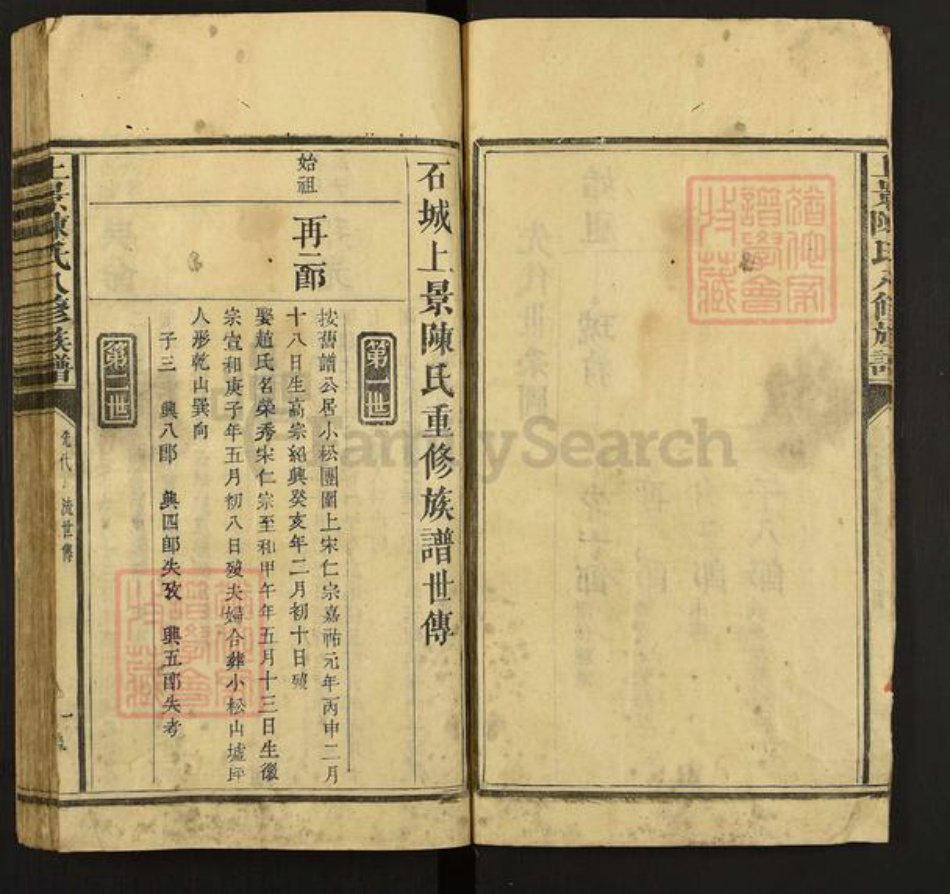 石城上景陳氏重修族譜世傳
第一世
始祖
再二郎
按舊譜公居小松團圍上宋仁宗嘉祐元年丙申二月
十八日生高宗紹興癸亥年二月初十日歿
娶趙氏名榮秀宋仁宗至和甲午年五月十三日生徽
宗宣和庚子年五月初八日歿夫婦合葬小松山墟坪
人形乾山巽向
子三 興八郎 興四郎失攷 興五郎失考
第二世
上景陳氏八修族譜
先代 流世傳
一
上景陳氏八修族譜
FamilySearch